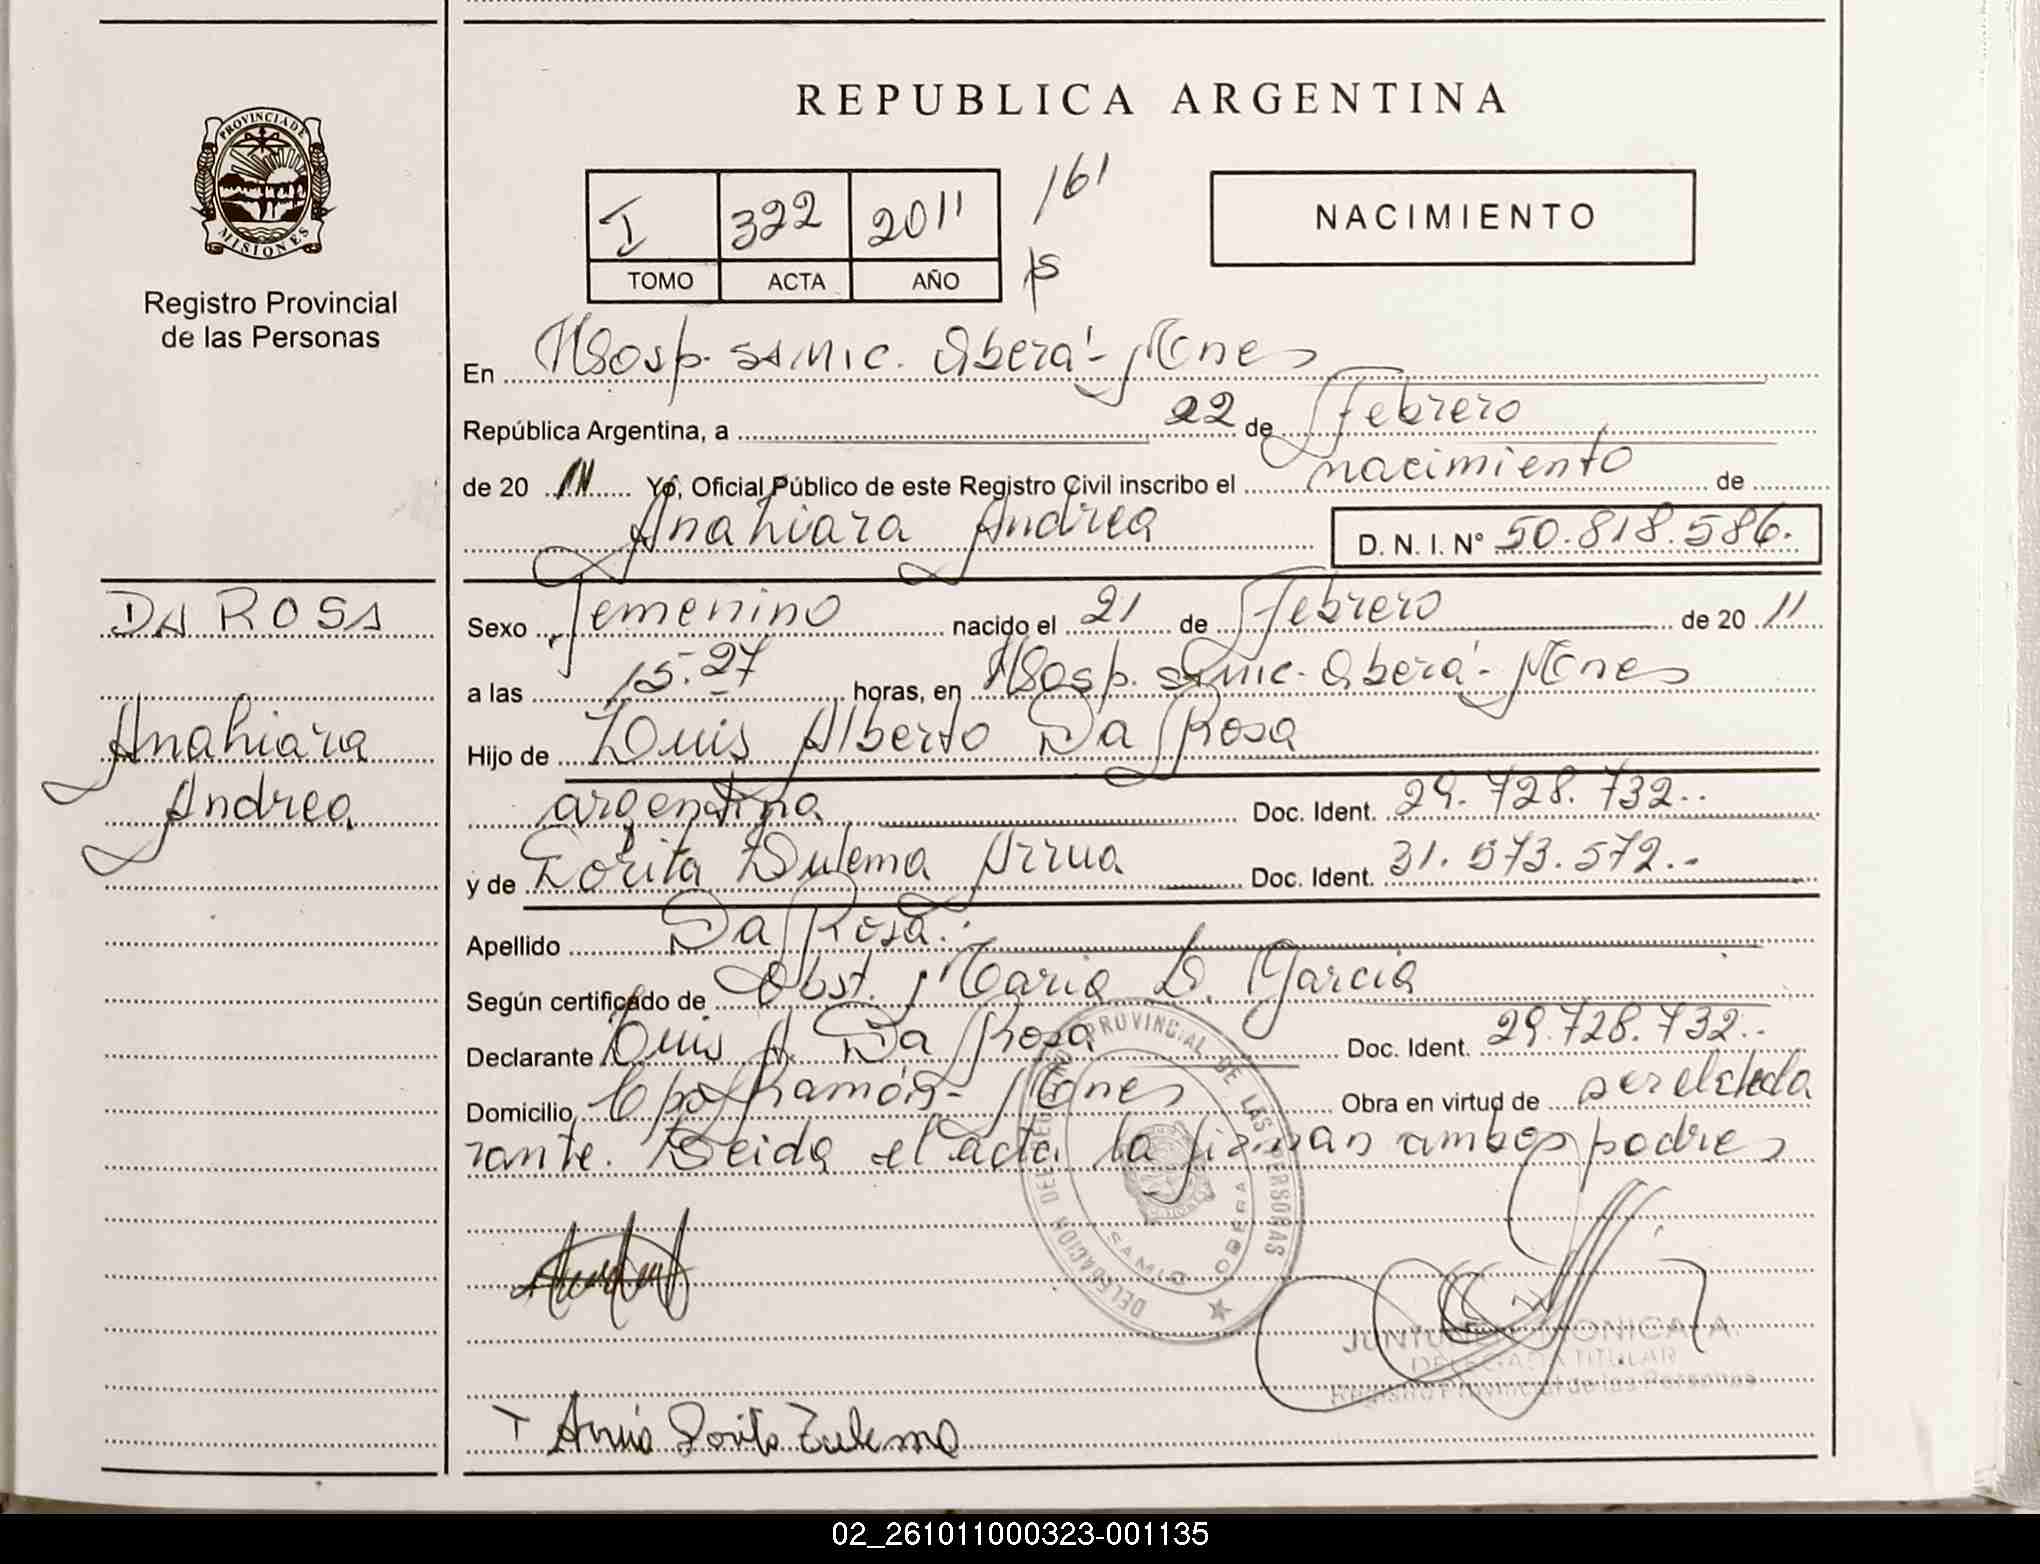 REPUBLICA ARGENTINA
PROVINCIA DE
MISIONES
Registro Provincial
de las Personas
I 322 2011 161
TOMO ACTA AÑO
NACIMIENTO
En Hosp. SAMIC. Oberá - Mnes
República Argentina, a 22 de Febrero
de 20 11 Yo, Oficial Público de este Registro Civil inscribo el nacimiento de
Anahiara Andrea D. N. I. N° 50.818.586.
DA ROSA
Anahiara
Andrea
Sexo Femenino nacido el 21 de Febrero de 20 11
a las 15:27 horas, en Hosp. Samic. Oberá - Mnes
Hijo de Luis Alberto Da Rosa
argentina Doc. Ident. 29.728.732..
y de Lorita Zulema Arrua Doc. Ident. 31.573.572..
Apellido Da Rosa.
Según certificado de Obst. Maria L. Garcia
Declarante Luis A. Da Rosa Doc. Ident. 29.728.732..
Domicilio Cpo Ramón - Mnes Obra en virtud de ser el decla
rante. Leida el acta la firman ambos padres
DELEGACION DEL REGISTRO PROVINCIAL DE LAS PERSONAS
SAMIC OBERA
DELEGADA TITULAR
Registro Provincial de las Personas
Arrua Lorita Zulema
02_261011000323-001135